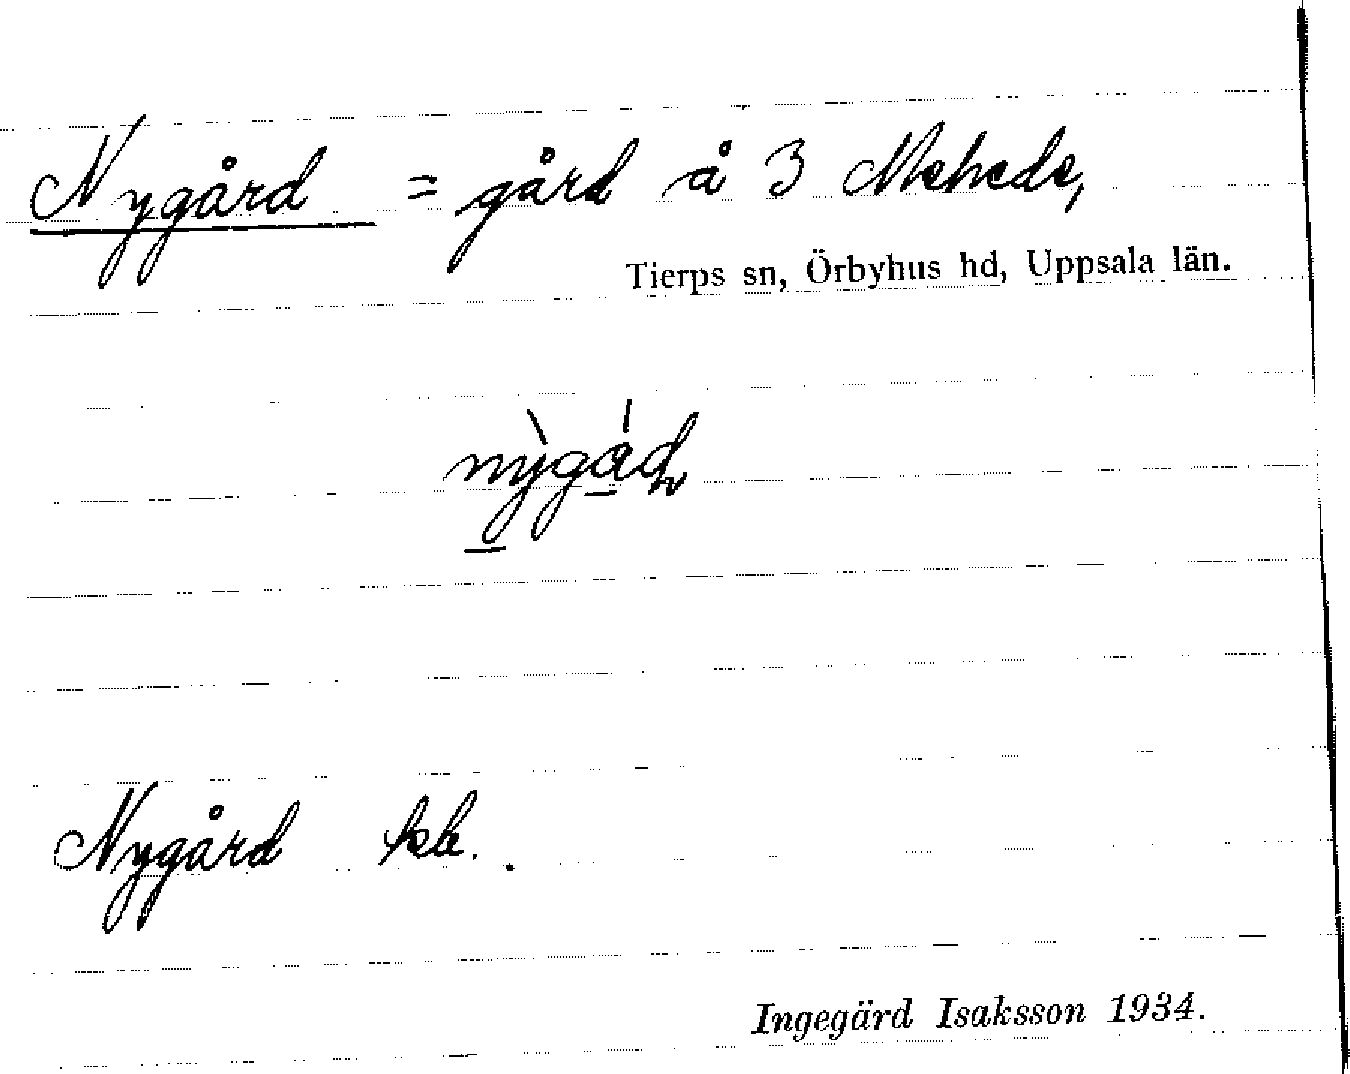 Nygård = gård å 3 Mehede,
Tierps sn, Örbyhus hd, Uppsala län.
Nygård
Ingegärd Isaksson 1934.